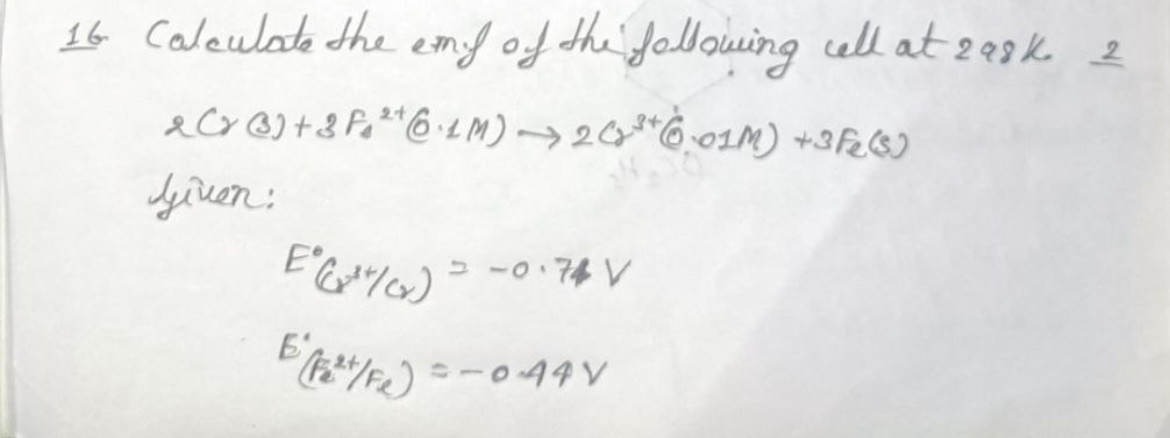 16. Calculate the emf of the following cell at 298K. 2
2Cr(s)+3Fe²⁺(0.1M)→2Cr³⁺(0.01M)+3Fe(s)
Given:
E°(Cr³⁺/Cr) = -0.74 V
E°(Fe²⁺/Fe) = -0.44 V